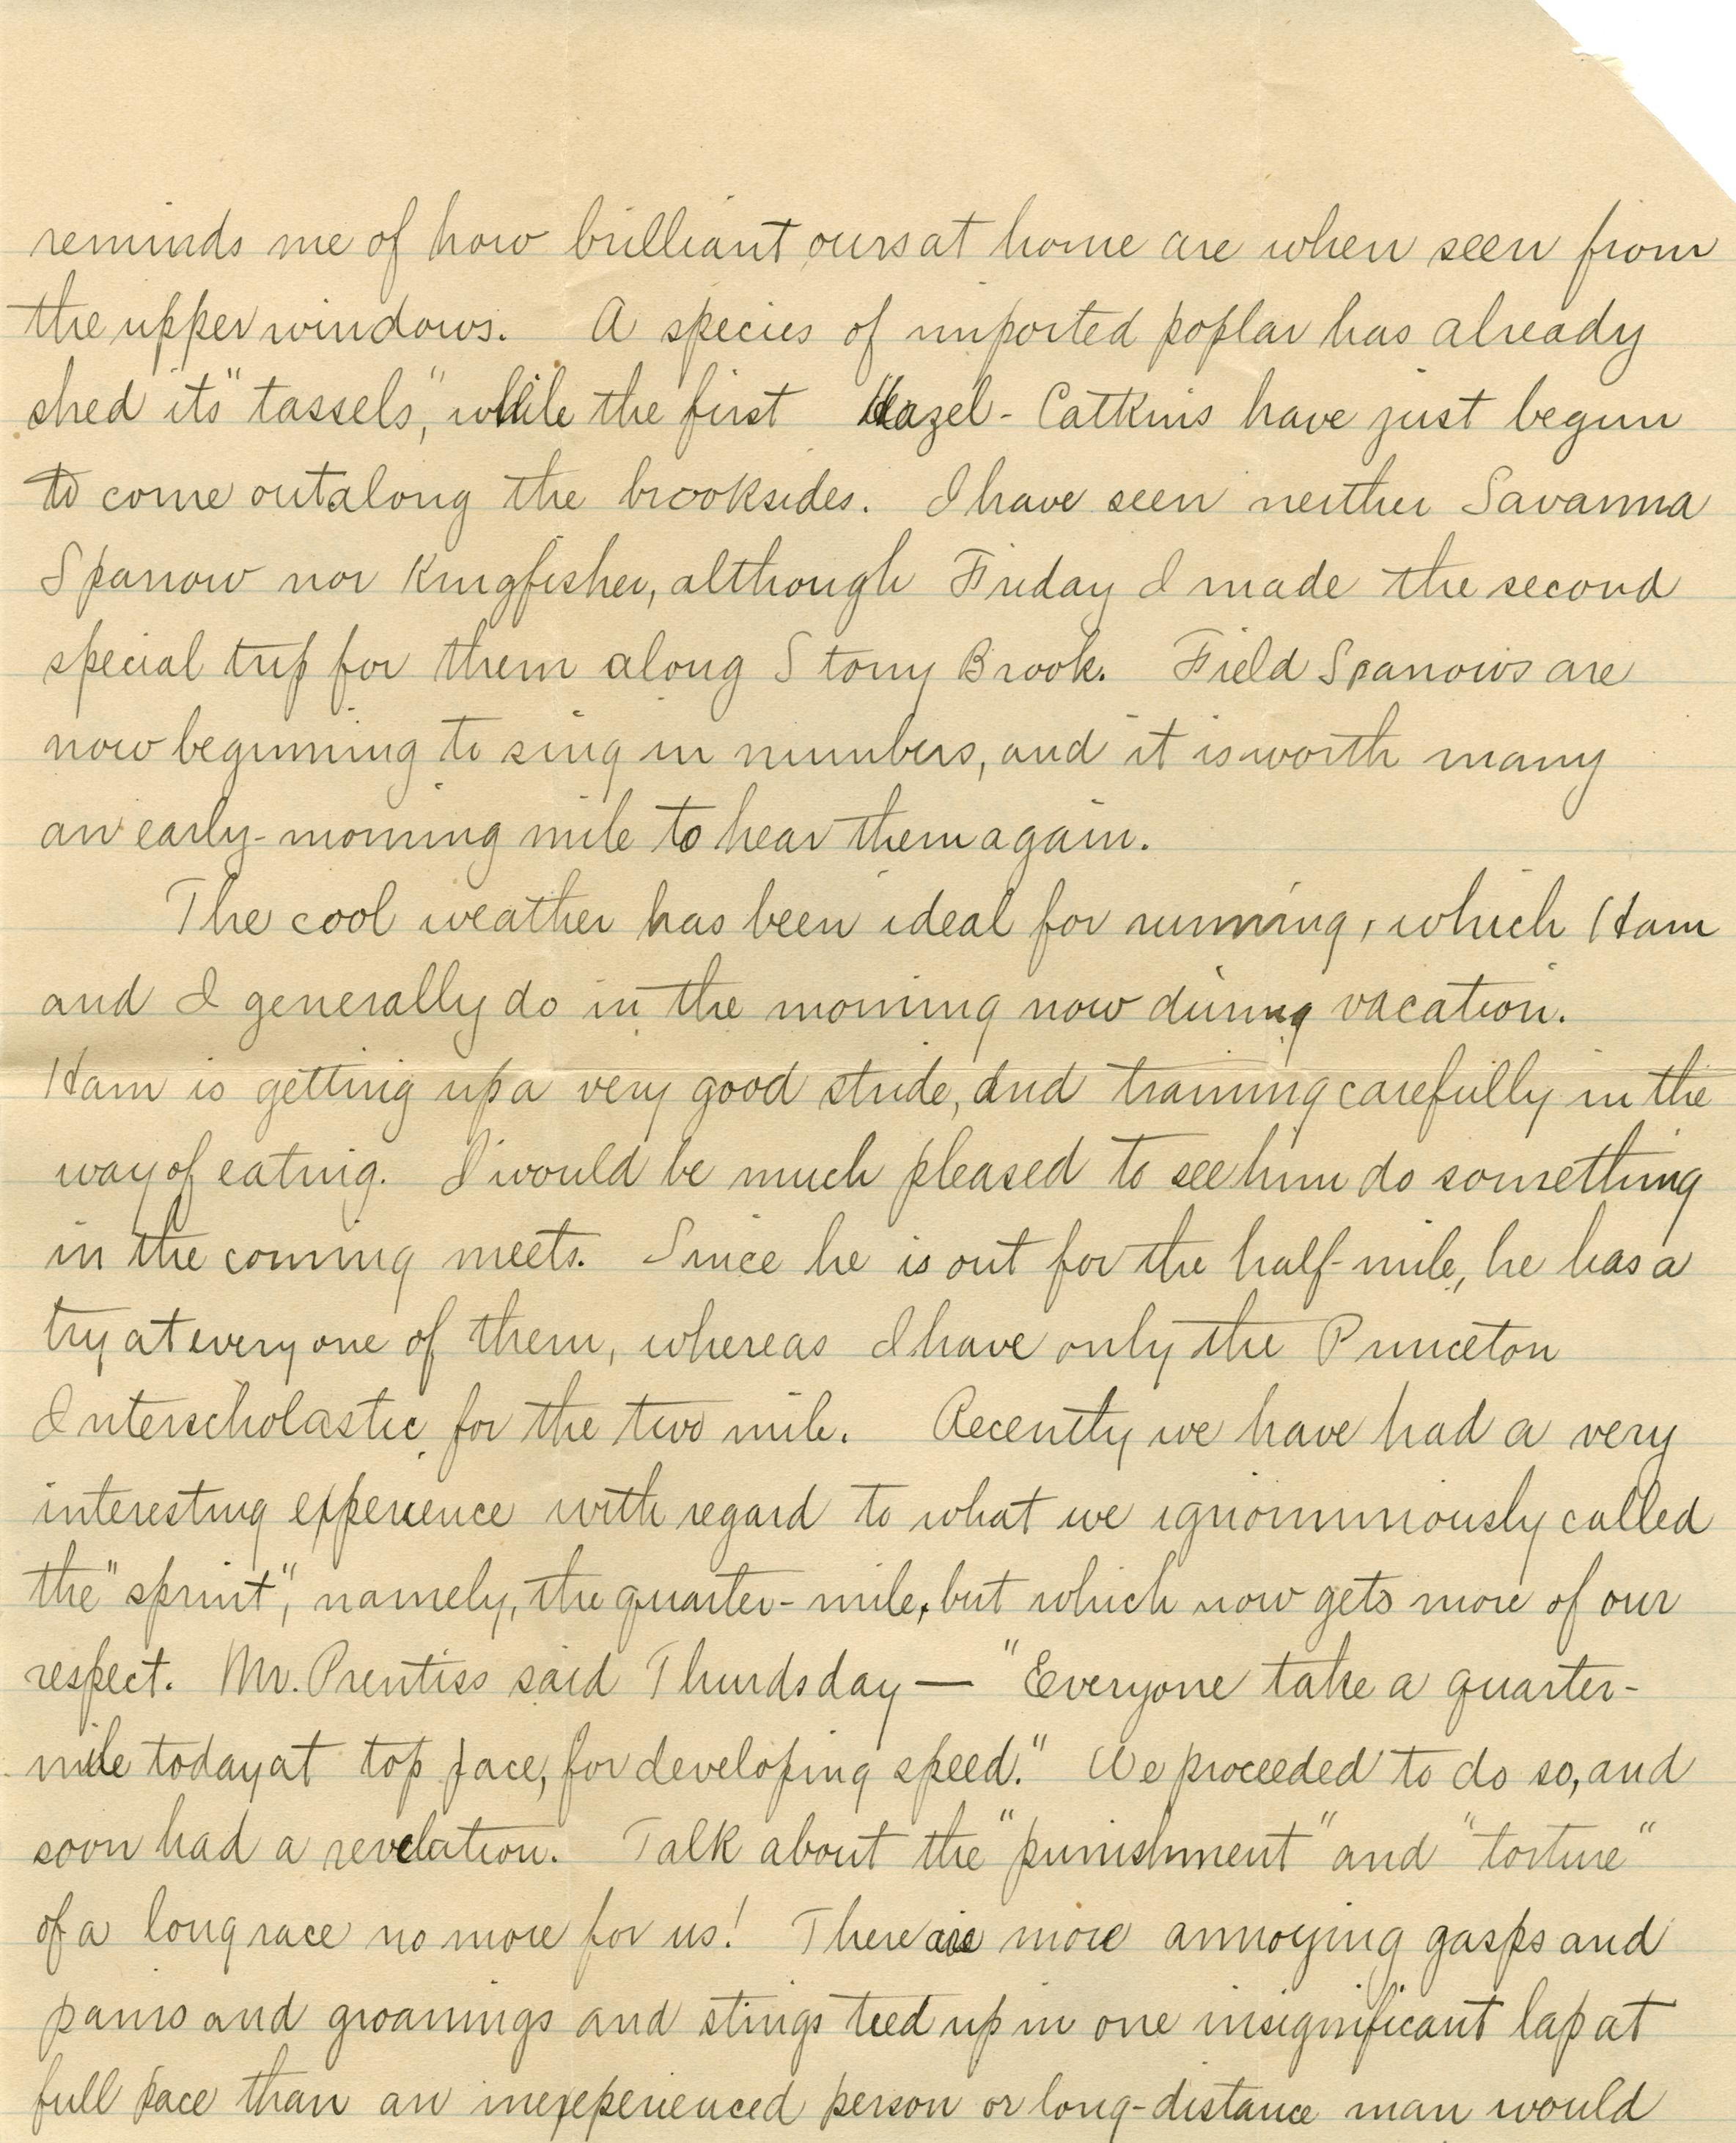 reminds me of how brilliant ours at home are when seen from
the upper windows. A species of imported poplar has already
shed its "tassels," while the first Hazel-Catkins have just begun
to come out along the brooksides. I have seen neither Savanna
Sparrow nor Kingfisher, although Friday I made the second
special trip for them along Stony Brook. Field Sparrows are
now beginning to sing in numbers, and it is worth many
an early-morning mile to hear them again.
The cool weather has been ideal for running, which Ham
and I generally do in the morning now during vacation.
Ham is getting up a very good stride, and training carefully in the
way of eating. I would be much pleased to see him do something
in the coming meets. Since he is out for the half-mile, he has a
try at every one of them, whereas I have only the Princeton
Interscholastic for the two mile. Recently we have had a very
interesting experience with regard to what we ignominiously called
the "sprint", namely, the quarter-mile, but which now gets more of our
respect. Mr. Prentiss said Thurdsday — "Everyone take a quarter-
mile today at top pace, for developing speed." We proceeded to do so, and
soon had a revelation. Talk about the "punishment" and "torture"
of a long race no more for us! There are more annoying gasps and
pains and groanings and stings tied up in one insignificant lap at
full pace than an inexeperienced person or long-distance man would